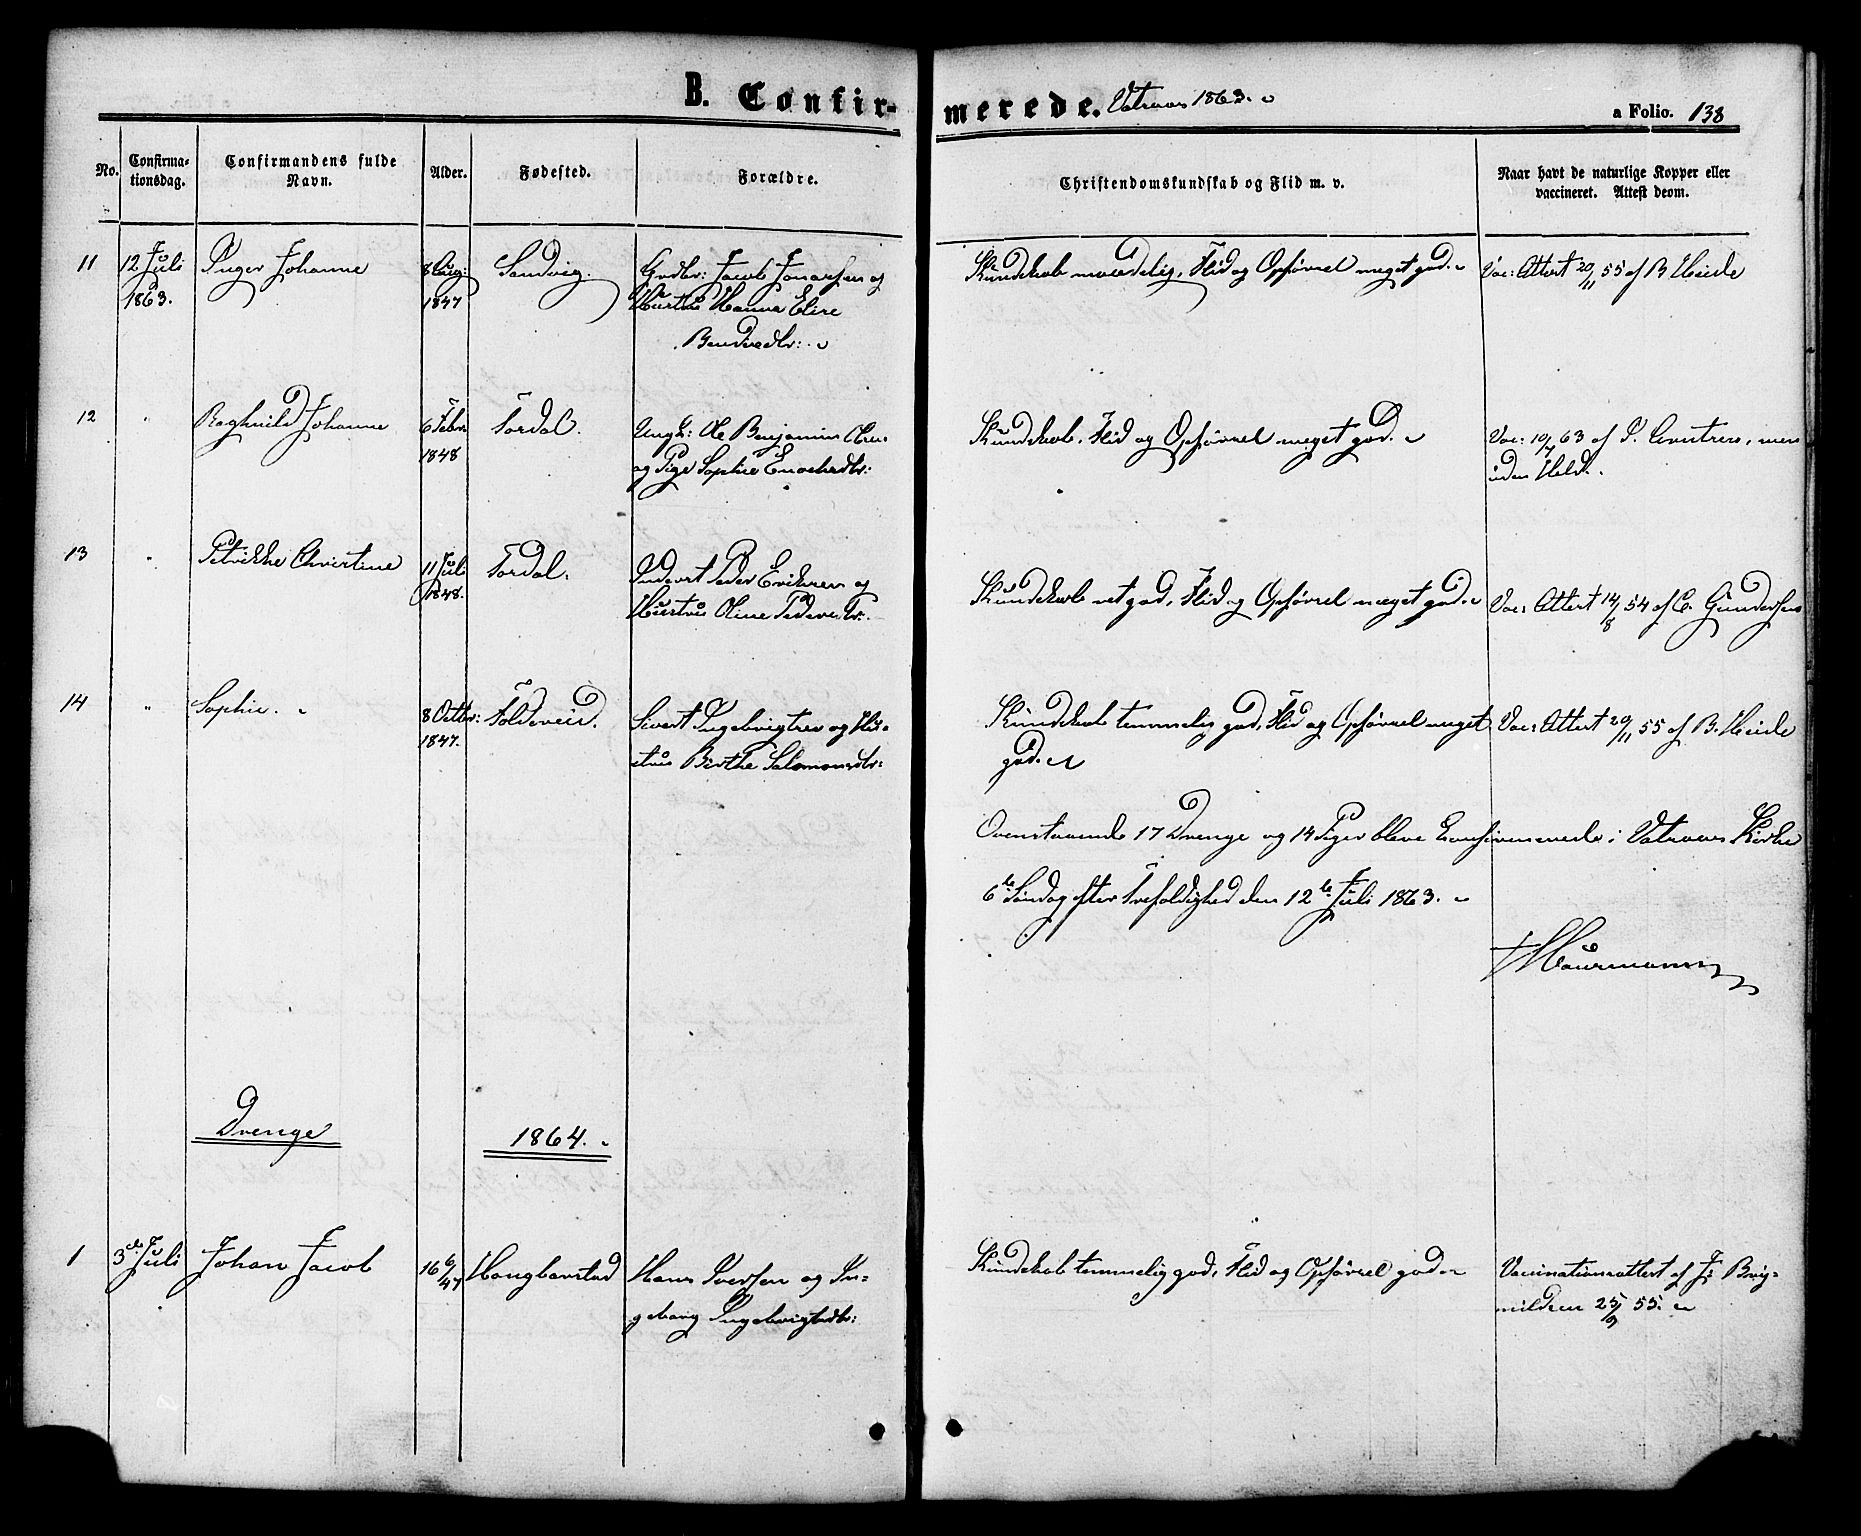 B. Confirmerede. Vatnaas 1863.
a Folio. 138
No.
Confirmationsdag.
Confirmandens fulde Navn.
Alder.
Fødested.
Forældre.
Christendomskundskab og Flid m. v.
Naar havt de naturlige Kopper eller
vaccineret. Attest derom.
11
12 Juli
1863.
Inger Johanne
8 Aug:
1847
Sandvig.
Grdbr: Jacob Jonassen og
Hustru Hanna Elise
Bendixdtr:
Kundskab maadelig, Flid og Opførsel meget god.
Vac: Attest 20/11 55 af B. Heide
12
"
Raghnild Johanne
6 Febr.
1848
Tordal.
Ungk: Ole Benjamin Olsen
og Pige Sophie Enochsdtr:
Kundskab, Flid og Opførsel meget god.
Vac: 10/7 63 af P. men
uden Held.
13
"
Petrikke Christine
11 Juli
1848.
Tordal.
Inderst Peder Eriksen og
Hustru Oline Pedersdtr.
Kundskab ret god, Flid og Opførsel meget god.
Vac: Attest 14/8 54 af C. Gundersen
14
"
Sophie.
8 Octbr:
1847.
Foldereid.
Sivert Ingebrigtsen og Hu-
stru Birthe Salomonsdtr:
Kundskab temmelig god, Flid og Opførsel meget
god.
Vac: Attest 20/11 55 af B. Heide
Ovenstaaende 17 Drenge og 14 Piger bleve confirmerede i Vatnaas Kirke
6te Søndag efter Trefoldighed den 12te Juli 1863.
Drenge
1864.
1
3de Juli
Johan Jacob
16 6/ 47
Haugbarstad
Hans Iversen og In-
geborg Ingebrigtsdtr:
Kundskab temmelig god, Flid og Opførsel god
Vaccinationsattest af J:
25/9 55.